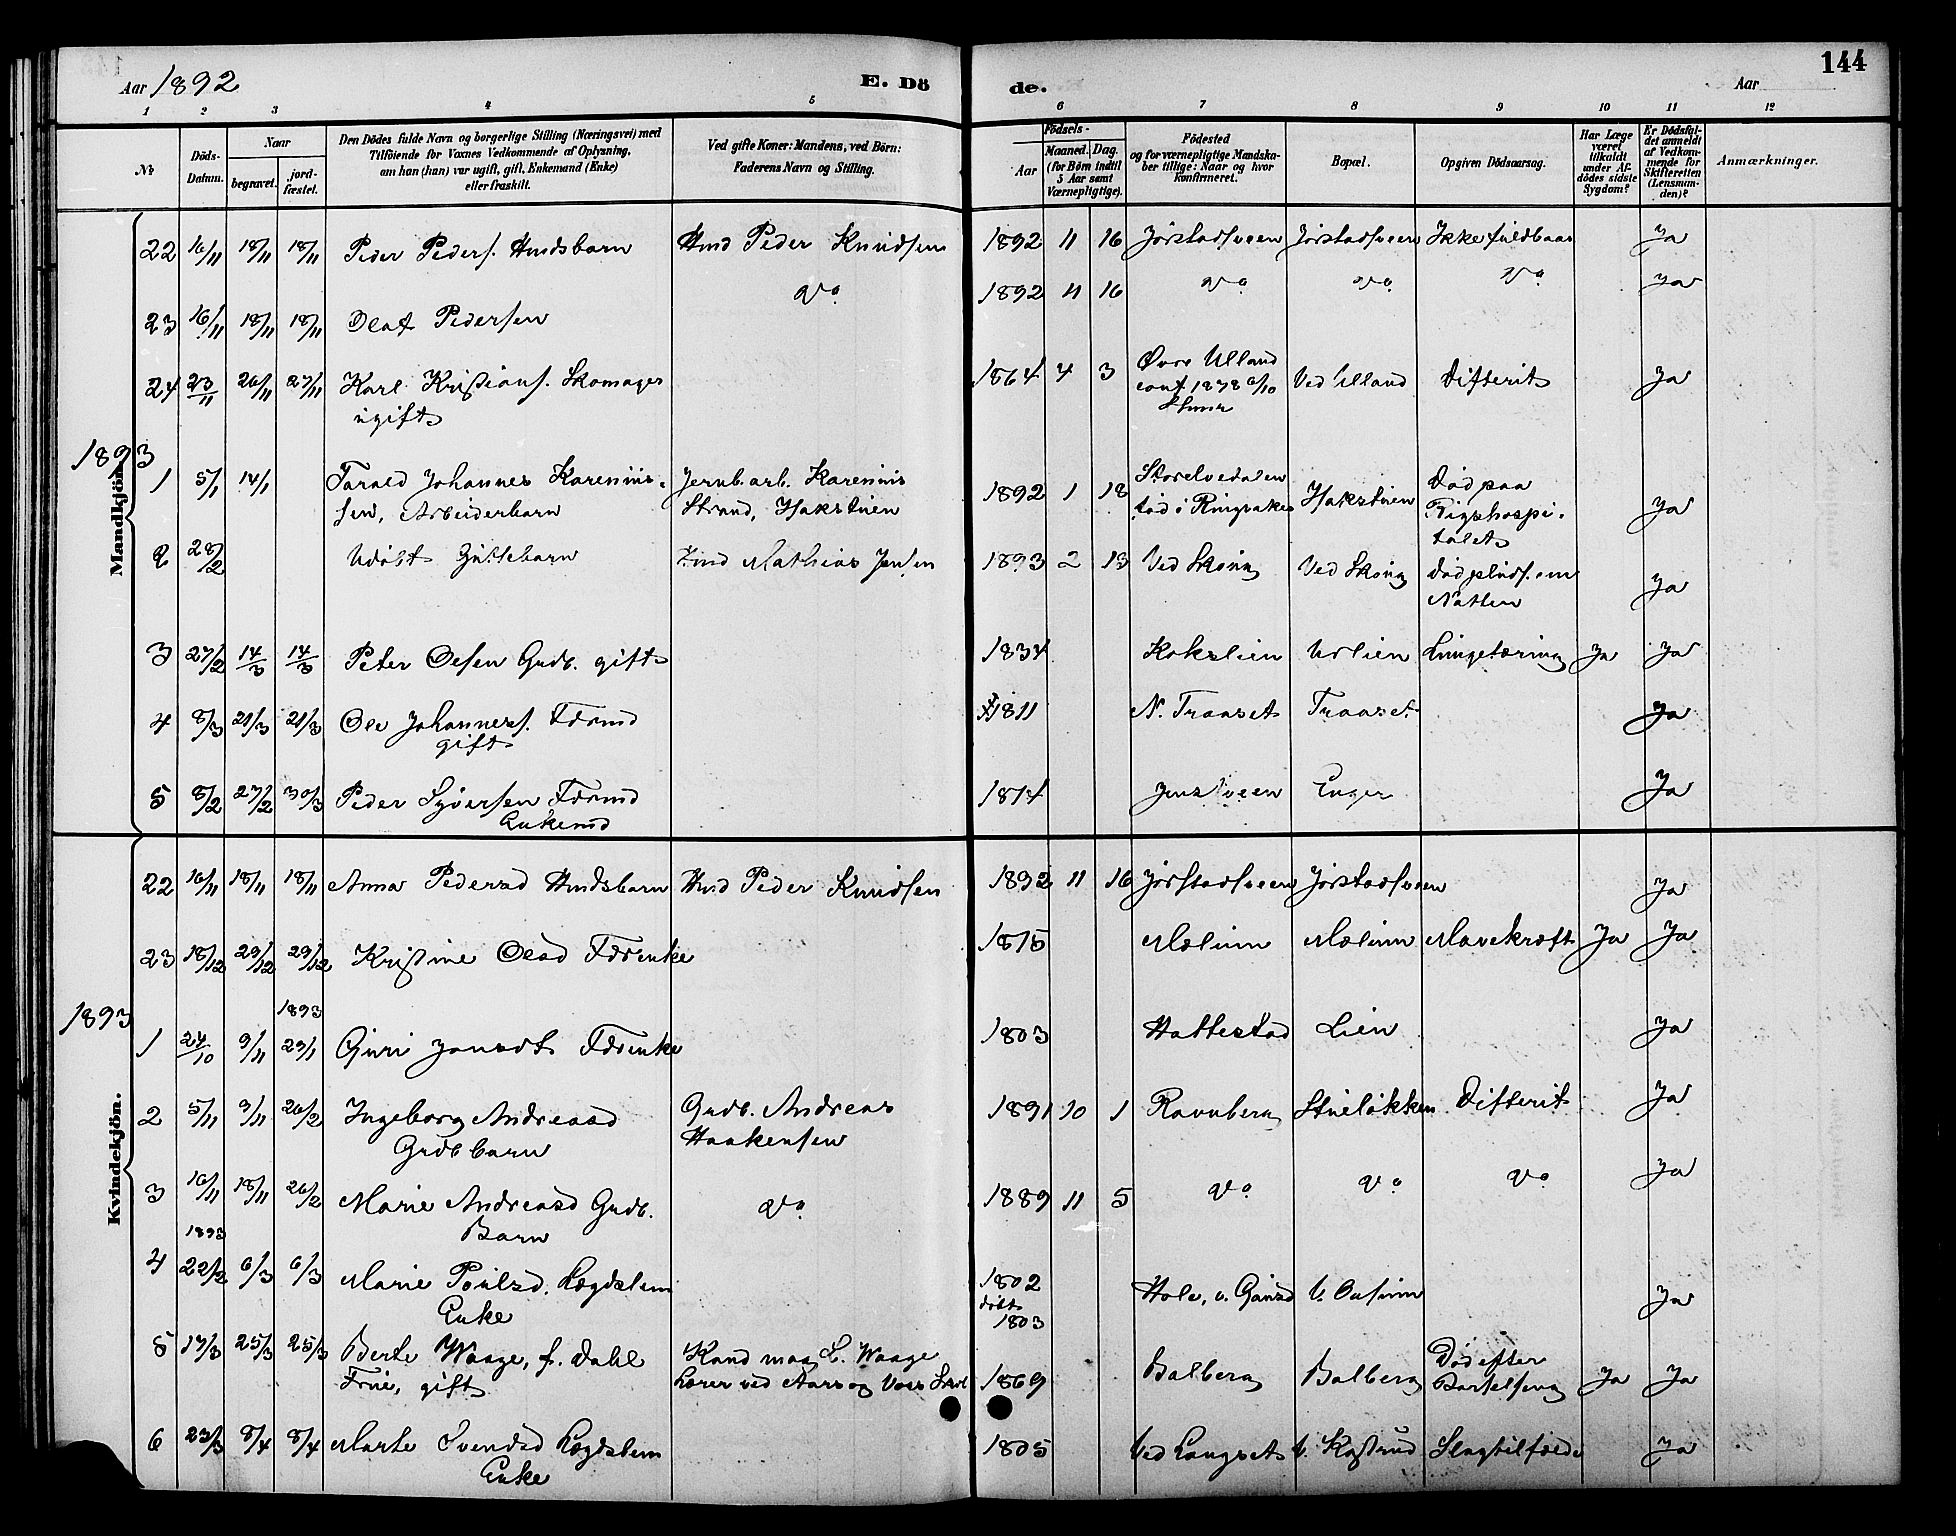 144
Aar 1892
E. Dö de.
Aar
1 2 3 4 5 6 7 8 9 10 11 12
No
Döds-Datum.
Naar
begravet.
jordfæstet.
Den Dödes fulde Navn og borgerlige Stilling (Næringsvei) med
Tilföiende for Voxnes Vedkommende af Oplysning,
om han (hun) var ugift, gift, Enkemand (Enke)
eller fraskilt.
Ved gifte Koner: Mandens, ved Börn:
Faderens Navn og Stilling.
Födsels-
Aar
Maaned. Dag.
(for Börn indtil
5 Aar samt
Værnepligtige).
Födested
og for værnepligtige Mandskaber tillige: Naar og hvor
konfirmeret.
Bopæl.
Opgiven Dödsaarsag.
Har Læge været tilkaldt under Afdödes sidste Sygdom?
Er Dödsfaldet anmeldt af Vedkommende for Skifteretten (Lensmanden)?
Anmærkninger.
Mandkjön.
22 16/11 18/11 18/11 Peder Peders. Hmdsbarn Hmd Peder Knudsen 1892 11 16 Jørstadsveen Jørstadsveen Ikke fuldbaar Ja
23 16/11 18/11 18/11 Olaf Pedersen do 1892 11 16 do do do Ja
24 23/11 26/11 27/11 Karl Kristians. Skomager
ugift 1864 4 3 Øvre Ulland
conf. 1878 6/10 Ved Ulland Difterit Ja
1893
1 5/1 14/1 Tarald Johannes Karenius-
sen, Arbeiderbarn Jernb. arb. Karenius
Strand, Hakstuen 1892 1 18 Storelvedalen
død i Ringsaker Hakstuen Død paa
Rigshospi-
talet Ja
2 28/2 Udøbt Guttebarn Hmd Mathias Jensen 1893 2 13 Ved Skoug Ved Skoug Død pluds. om
Natten Ja
3 27/2 14/3 14/3 Peter Olsen Grdb. gift 1834 Kokslien Urlien Lungetæring Ja Ja
4 8/3 21/3 21/3 Ole Johanness. Fdrmd
gift 1811 N. Traaset Traaset Ja
5 8/2 27/2 30/3 Peder Syversen Fdrmd
Enkemd 1814 Jensveen Enger Ja
Kvindekjön.
22 16/11 18/11 18/11 Anna Pedersd Hmdsbarn Hmd Peder Knudsen 1892 11 16 Jørstadsveen Jørstadsveen Ja
23 18/12 29/12 29/12 Kristine Olsd Fdrenke 1815 Mælum Mælum Mavekræft Ja Ja
1893
1893
1 24/10 9/11 29/1 Guri Jonsdt Fdrenke 1803 Hattestad Lien Ja
2 5/11 9/11 26/2 Ingeborg Andreasd
Grdb barn Grdb. Andreas
Haakensen 1891 10 1 Ravnberg Stueløkken Difterit Ja
3 16/11 18/11 26/2 Marie Andreasd Grdb.
Barn do 1889 11 5 do do do Ja
1893
4 22/2 6/3 6/3 Marie Poulsd. Lægdslem
Enke 1802
døbt
1803 Ja
5 17/3 25/3 25/3 Berte Waage, f. Dahl
Frue, gift Kand mag L. Waage
Lærer ved Aars og Voss Skol 1869 Balberg Balberg Død efter
Barselseng Ja Ja
6 23/3 8/4 8/4 Marte Svendsd Lægdslem
Enke 1805 Ved Langset Slagtilfælde Ja